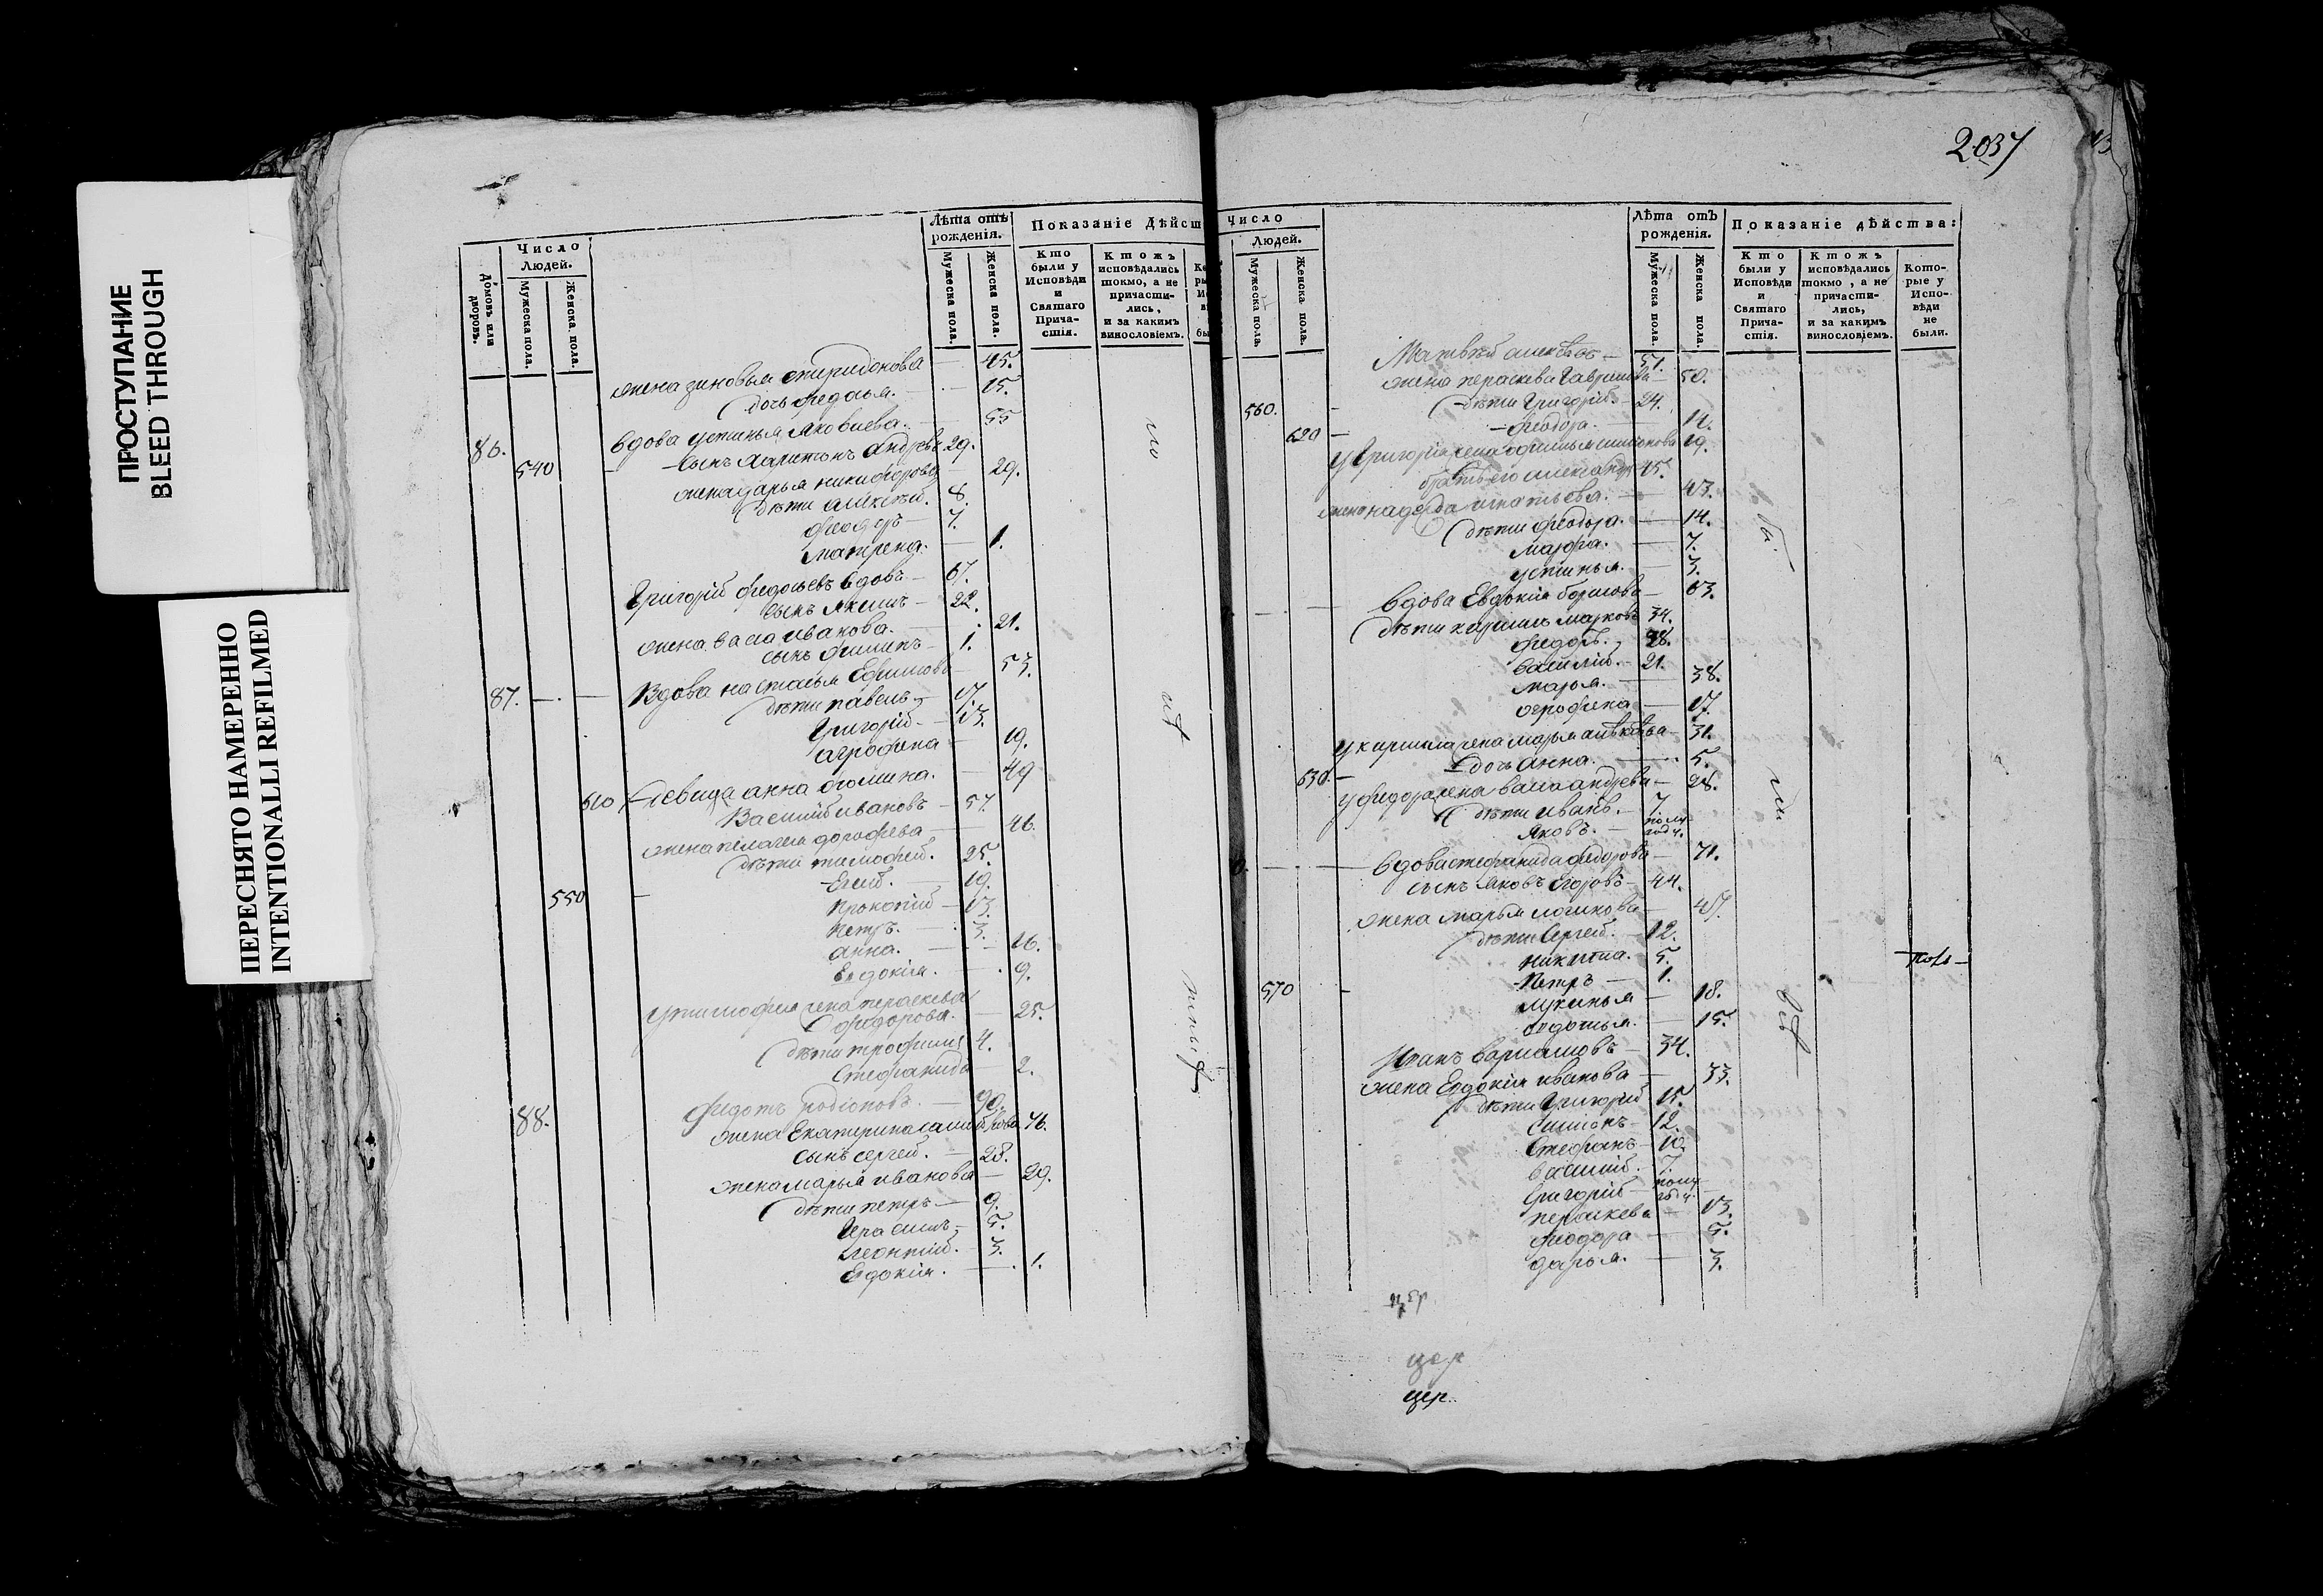 ПРОСТУПАНИЕ
BLEED THROUGH
ПЕРЕСНЯТО НАМЕРЕННО
INTENTIONALLI REFILMED
Число Людей.
Домовъ или дворовъ.
Мужеска пола.
Женска пола.
Лѣта отъ рожденія.
Мужеска пола.
Женска пола.
Показаніе Дѣйст
Кто были у Исповѣди и Святаго Прича-стія.
Ктожъ исповѣдались токмо, а не причасти-лись, и за какимъ винословіемъ.
жена зиновья спиридонова — 45.
дочь федосья. — 15.
86. вдова устинья Яковлева. — 55
540 — сынъ Харитонъ Андреевъ 29.
жена дарья никифорова 29.
дѣти алексѣй. 8.
феодоръ — 7.
матрена. — 1.
Григорій федосѣевъ вдовъ — 67.
сынъ Якимъ — 22.
жена васа иванова. — 21.
сынъ филипъ — 1.
87. — — Вдова настасья Ефимова — 53.
дѣти павелъ — 17.
Григорій. — 13.
агрофена — 19.
610 Девица анна фомина. — 49
Василій ивановъ — 57.
жена пелагея дорофеева — 46.
дѣти тимофей. 25.
550 — 19.
Прокопій — 13.
Петръ. — 3.
анна. — 16.
Евдокія. — 9.
у тимофея жена пераскева
федорова. — 25.
дѣти трофимъ 4.
Стефанида — 2.
88. федотъ родіоновъ. — 90.
жена Екатерина 76.
сынъ сергей. — 28.
жена марья иванова — 29.
дѣти петръ — 9.
Герасимъ — 5.
Леонтій. — 3.
Евдокія. — 1.
2037
Число Людей.
Мужеска пола.
Женска пола.
Лѣта отъ рожденія.
Мужеска пола.
Женска пола.
Показаніе дѣйства:
Кто были у Исповѣди и Святаго Прича-стія.
Ктожъ исповѣдались токмо, а не причасти-лись, и за какимъ винословіемъ.
Кото-рые у Испо-вѣди не были.
Матвѣй алексѣевъ — 51.
жена пераскева Гаврилова — 50.
560. — дѣти Григорій. — 24.
620 — феодора. — 11.
у Григорія жена 19.
братъ его александръ 45.
жена надежда игнатьева. — 43.
дѣти феодора. — 14.
марфа. — 7.
устинья. — 3.
— — вдова Евдокія борисова — 63.
дѣти кирилъ марковъ 34.
федоръ. 28.
василій. — 21.
марья. — 38.
огрофена — 17.
у кирила жена марья алексѣева — 31.
630. — дочь анна. — 5.
у федора жена васа андреева — 28.
дѣти иванъ. — 7.
Яковъ. — полу год ч.
— — вдова стефанида федорова — 71.
сынъ Яковъ Егоровъ — 44.
жена марья логинова — 47.
дѣти Сергей. — 12.
никита. 5.
570 — Петръ — 1.
лукинья — 18.
авдотья. — 15.
Иванъ варламовъ — 34.
жена Евдокія иванова — 33.
дѣти Григорій 15.
симіонъ — 12.
Стефанъ — 10.
василій. 7.
Григорій — полу год ч.
пераскева — 13.
феодора — 5.
дарья. — 3.
цер
цер
цер.